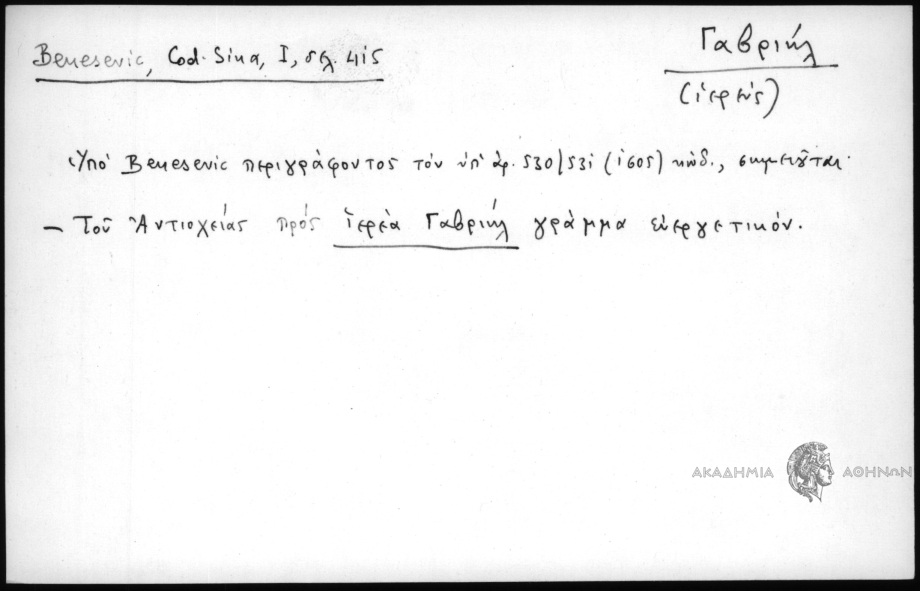 Benesevic, Cod. Sina, I, σελ. 415
Γαβριήλ
(ἱερεύς)
Ὑπό Benesevic περιγράφοντος τόν ὑπ' ἀρ. 530/531 (1605) κώδ., σημειοῦται·
— Τοῦ Ἀντιοχείας πρός ἱερέα Γαβριήλ γράμμα εὐεργετικόν.
ΑΚΑΔΗΜΙΑ ΑΘΗΝΩΝ